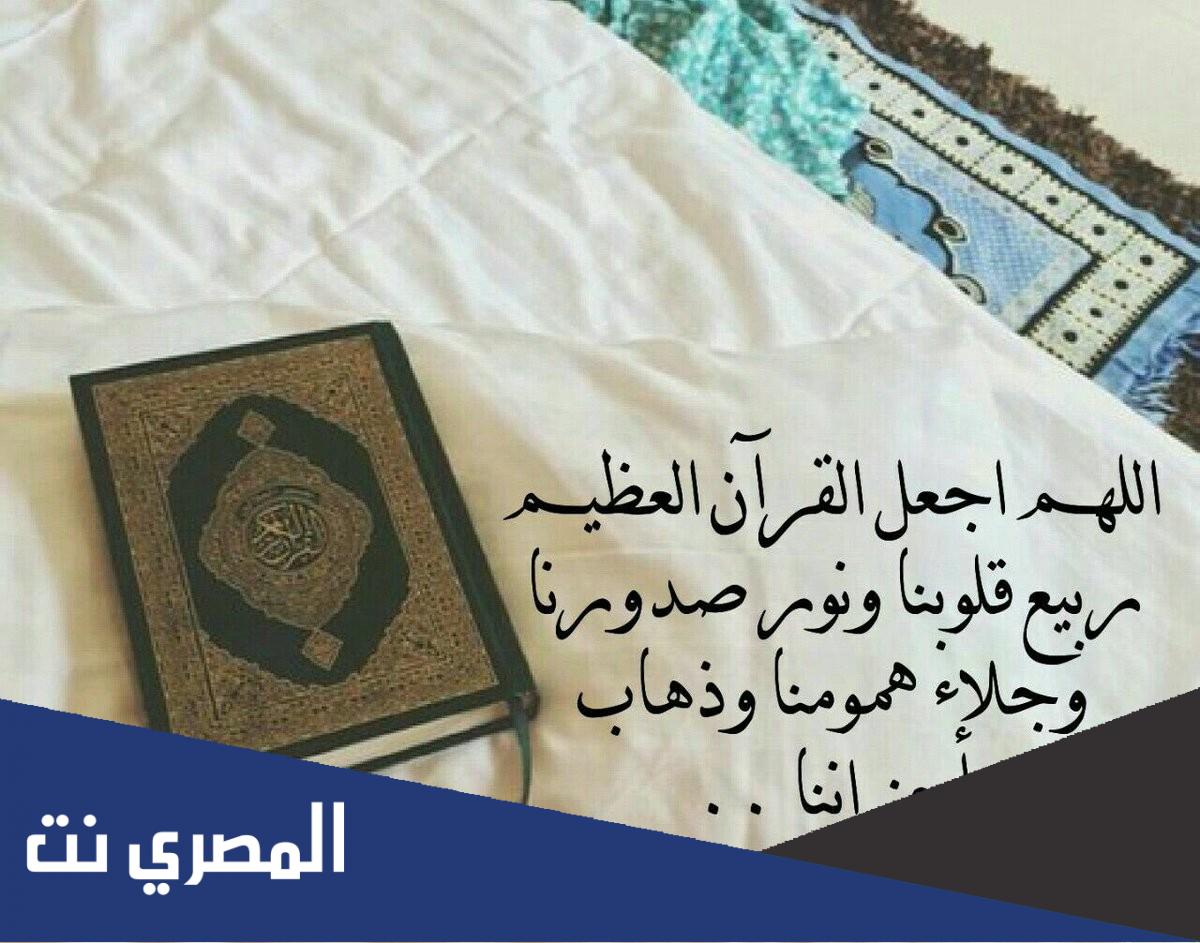 اللهم اجعل القرآن العظيم
ربيع قلوبنا ونور صدورنا
وجلاء همومنا وذهاب
المصري نت